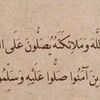 اللَّهَ وَمَلَائِكَتَهُ يُصَلُّونَ عَلَى
آمَنُوا صَلُّوا عَلَيْهِ وَسَلِّمُو